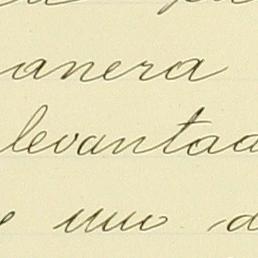 anera
levantad
uno d